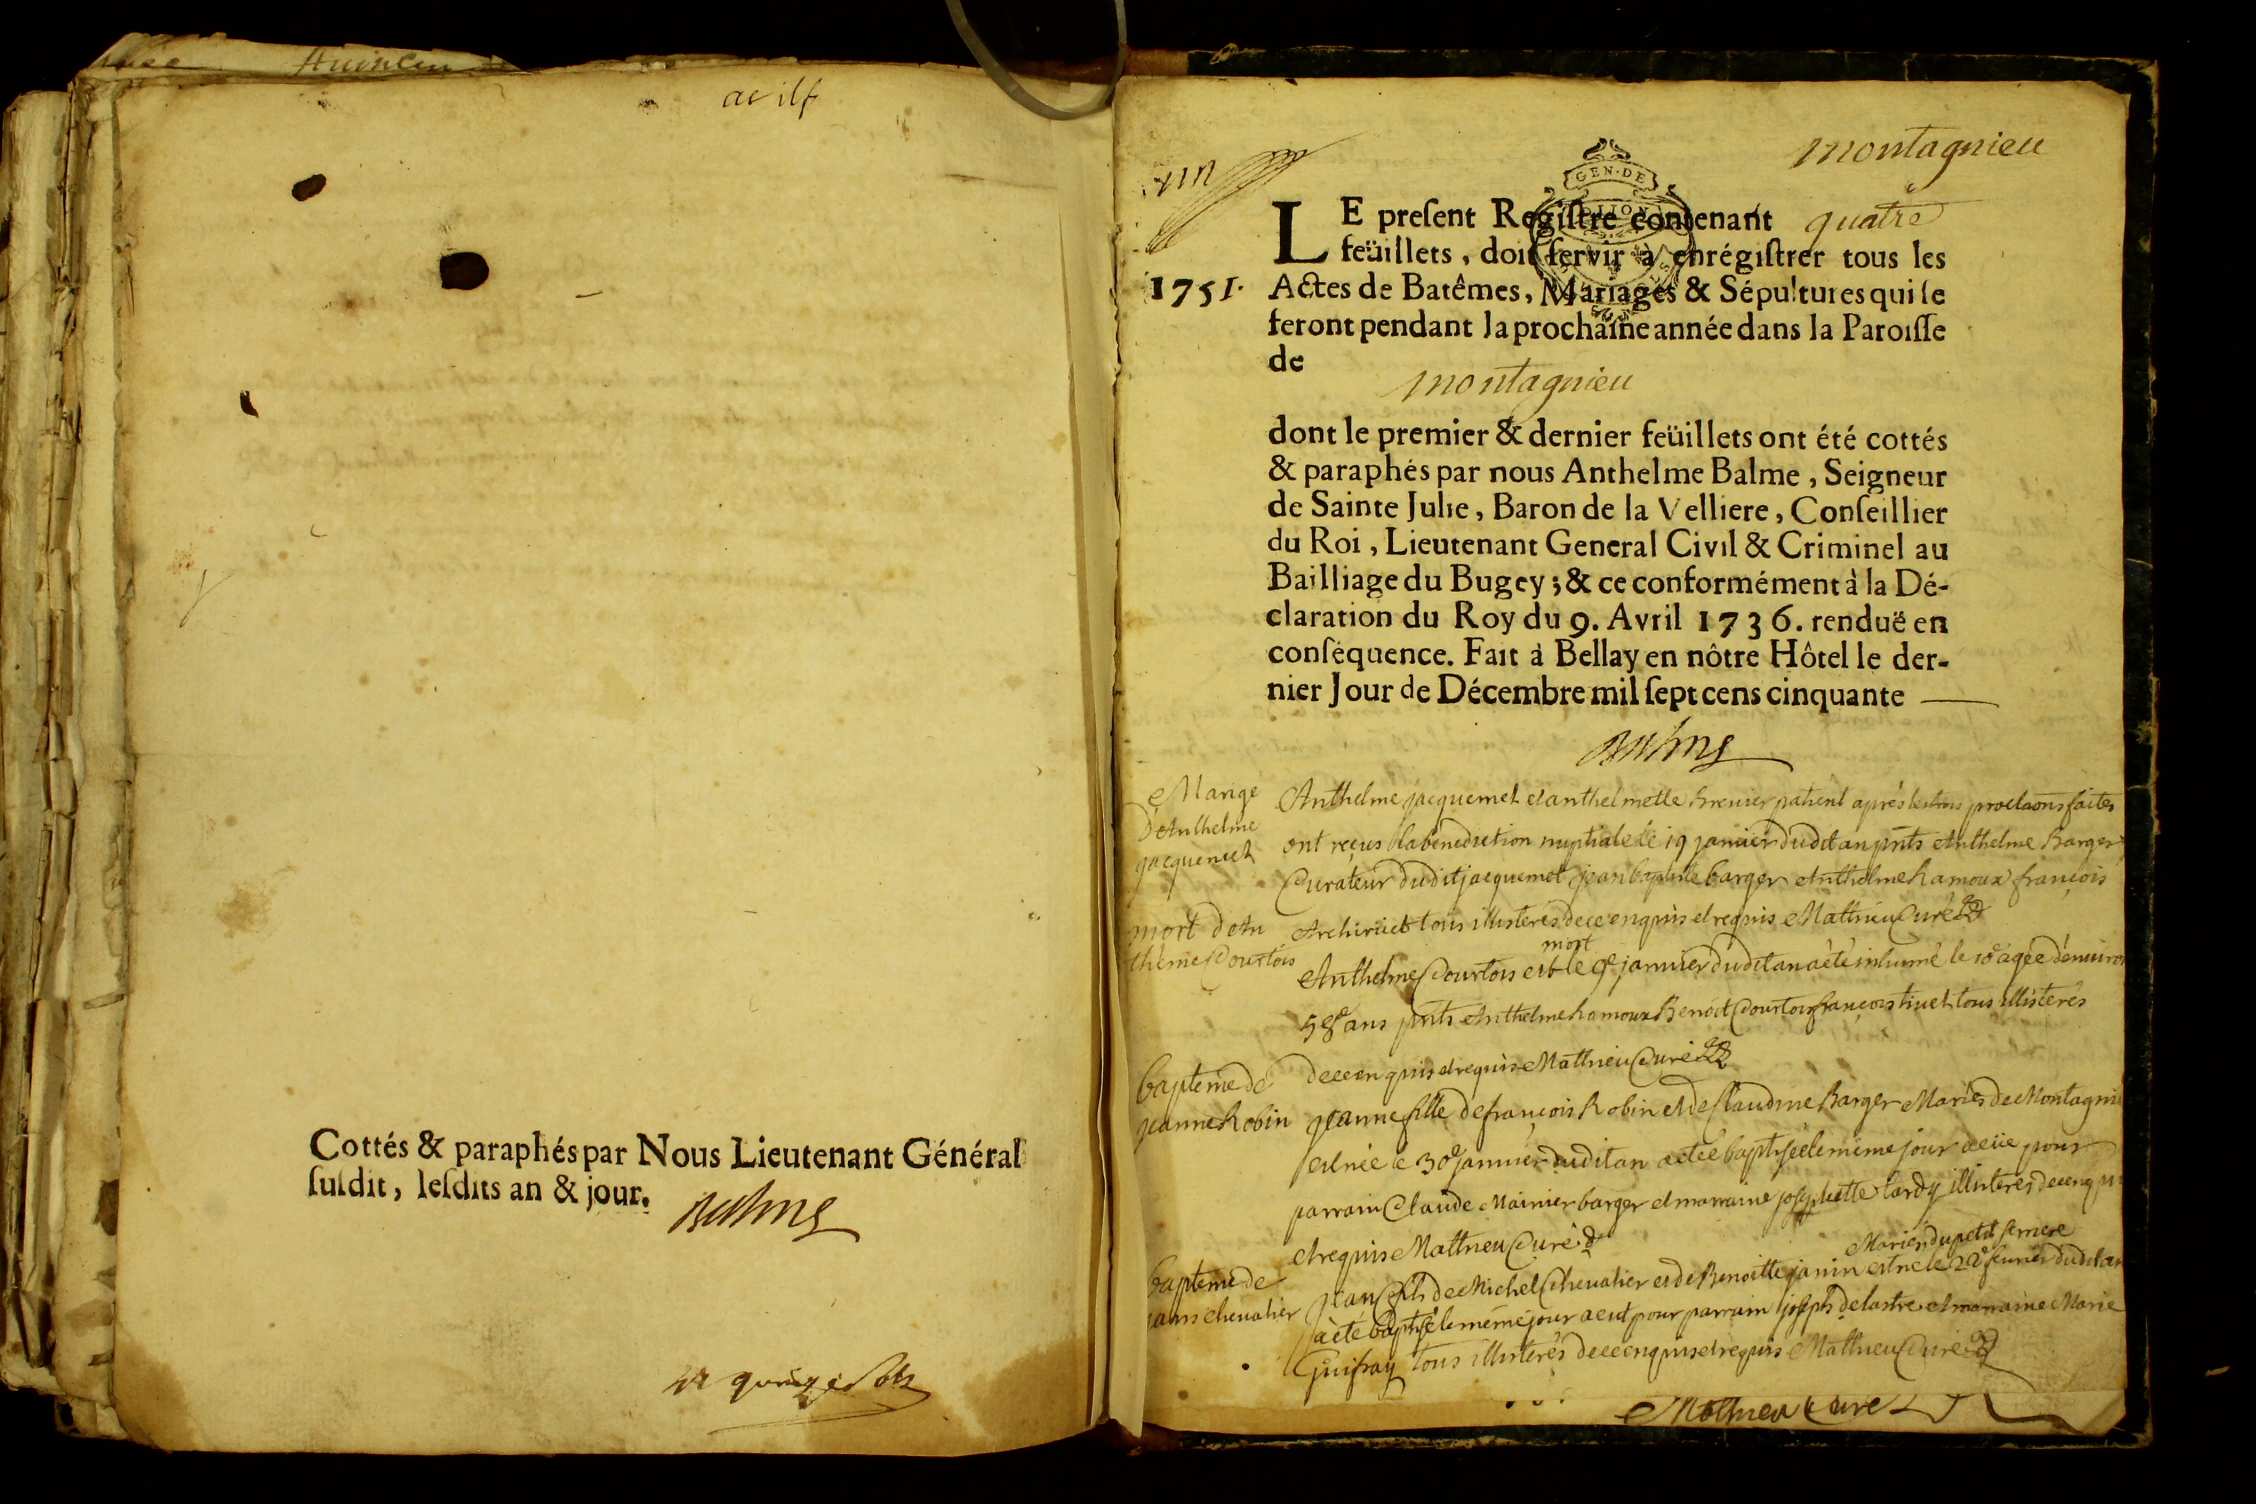 Cottés & paraphés par Nous Lieutenant Général
ſuſdit, leſdits an & jour.
Balme
montagnieu
GEN·DE
LE preſent Regiſtre contenant quatre
feüillets, doit ſervir à enrégiſtrer tous les
1751.
Actes de Batêmes, Mariages & Sépultures qui ſe
feront pendant la prochaine année dans la Paroiſſe
de
montagnieu
dont le premier & dernier feüillets ont été cottés
& paraphés par nous Anthelme Balme, Seigneur
de Sainte Julie, Baron de la Velliere, Conſeillier
du Roi, Lieutenant General Civil & Criminel au
Bailliage du Bugey; & ce conformément à la Dé-
claration du Roy du 9. Avril 1736. renduë en
conſéquence. Fait à Bellay en nôtre Hôtel le der-
nier Jour de Décembre mil ſept cens cinquante
Balme
Mariage
D'Anthelme
jacquemet
Anthelme jacquemet et anthelmette après proclaons faites
ont reçus la benediction nuptiale le 19 janvier dudit an pnts Anthelme Barger
Curateur dudit jacquemet jean baptiste barger Anthelme Ramoux françois
tous illisterés de ce enquis et requis Mathieu Curé
mort d'An
thelme Courtois
Anthelme Courtois est mort le 9e janvier dudit an a été inhumé le 10e agée d'environ
58 ans pnts Anthelme Ramoux Benoit Courtois françois tous illisterés
de ce enquis et requis Mathieu Curé
bapteme de
jeanne Robin
jeanne fille de françois Robin et de Claudine Barger Mariés de Montagnieu
est née le 30e janvier dudit an a eté baptisée le meme jour a eüe pour
parrain Claude Mainier barger et marraine josephette tardy illisterés de ce enquis
et requis Mathieu Curé
bapteme de
jean chevalier
Mariés du petit serriere
jean fils de Michel Chevalier et de Benoitte janin est né le fevrier dudit an
a èté baptisé le méme jour a eut pour parrain joseph delastre et marraine Marie
Guifray tous illisterés de ce enquis et requis Mathieu Curé
Mathieu Curé